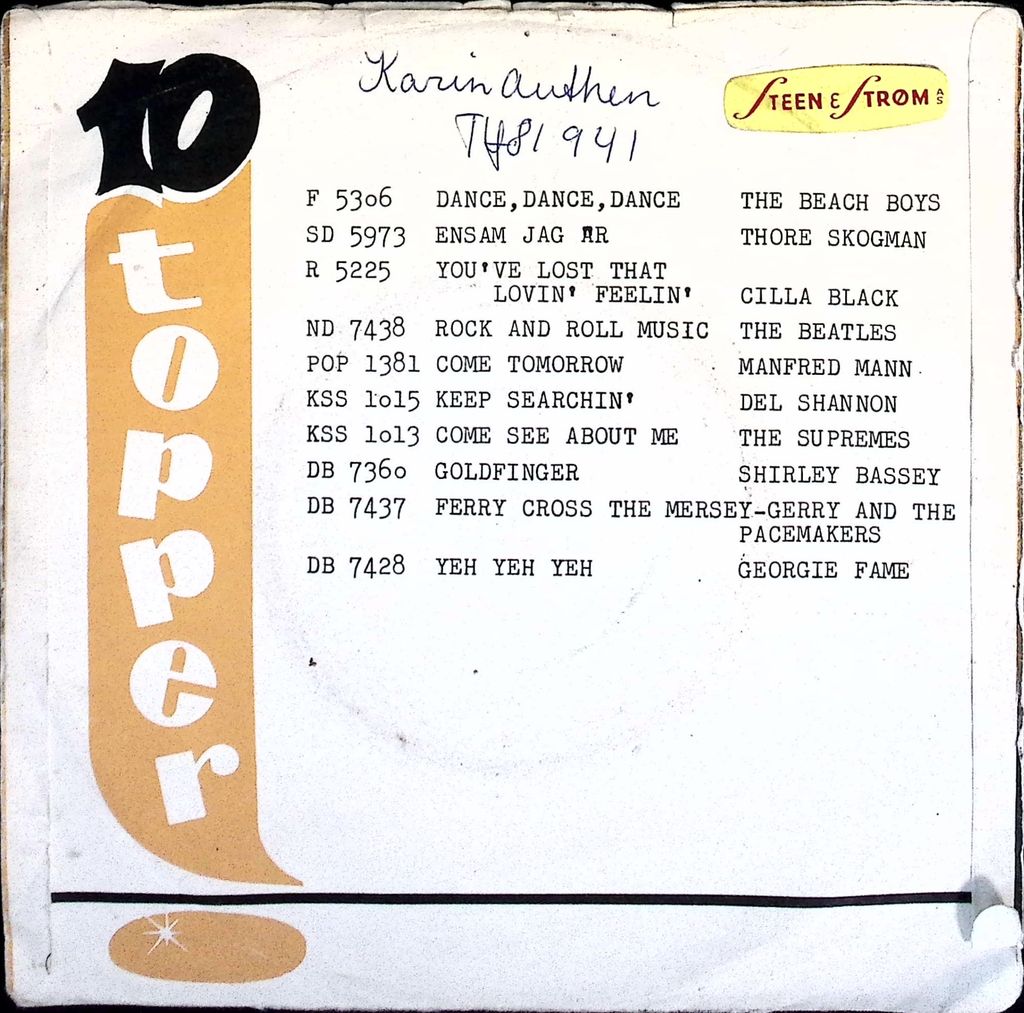 10
topper
Karin Authen
Tlf 81 941
STEEN & STRØM AS
F 5306 DANCE,DANCE,DANCE THE BEACH BOYS
SD 5973 ENSAM JAG ÄR THORE SKOGMAN
R 5225 YOU'VE LOST THAT
LOVIN' FEELIN' CILLA BLACK
ND 7438 ROCK AND ROLL MUSIC THE BEATLES
POP 1381 COME TOMORROW MANFRED MANN
KSS 1015 KEEP SEARCHIN' DEL SHANNON
KSS 1013 COME SEE ABOUT ME THE SUPREMES
DB 7360 GOLDFINGER SHIRLEY BASSEY
DB 7437 FERRY CROSS THE MERSEY-GERRY AND THE
PACEMAKERS
DB 7428 YEH YEH YEH GEORGIE FAME